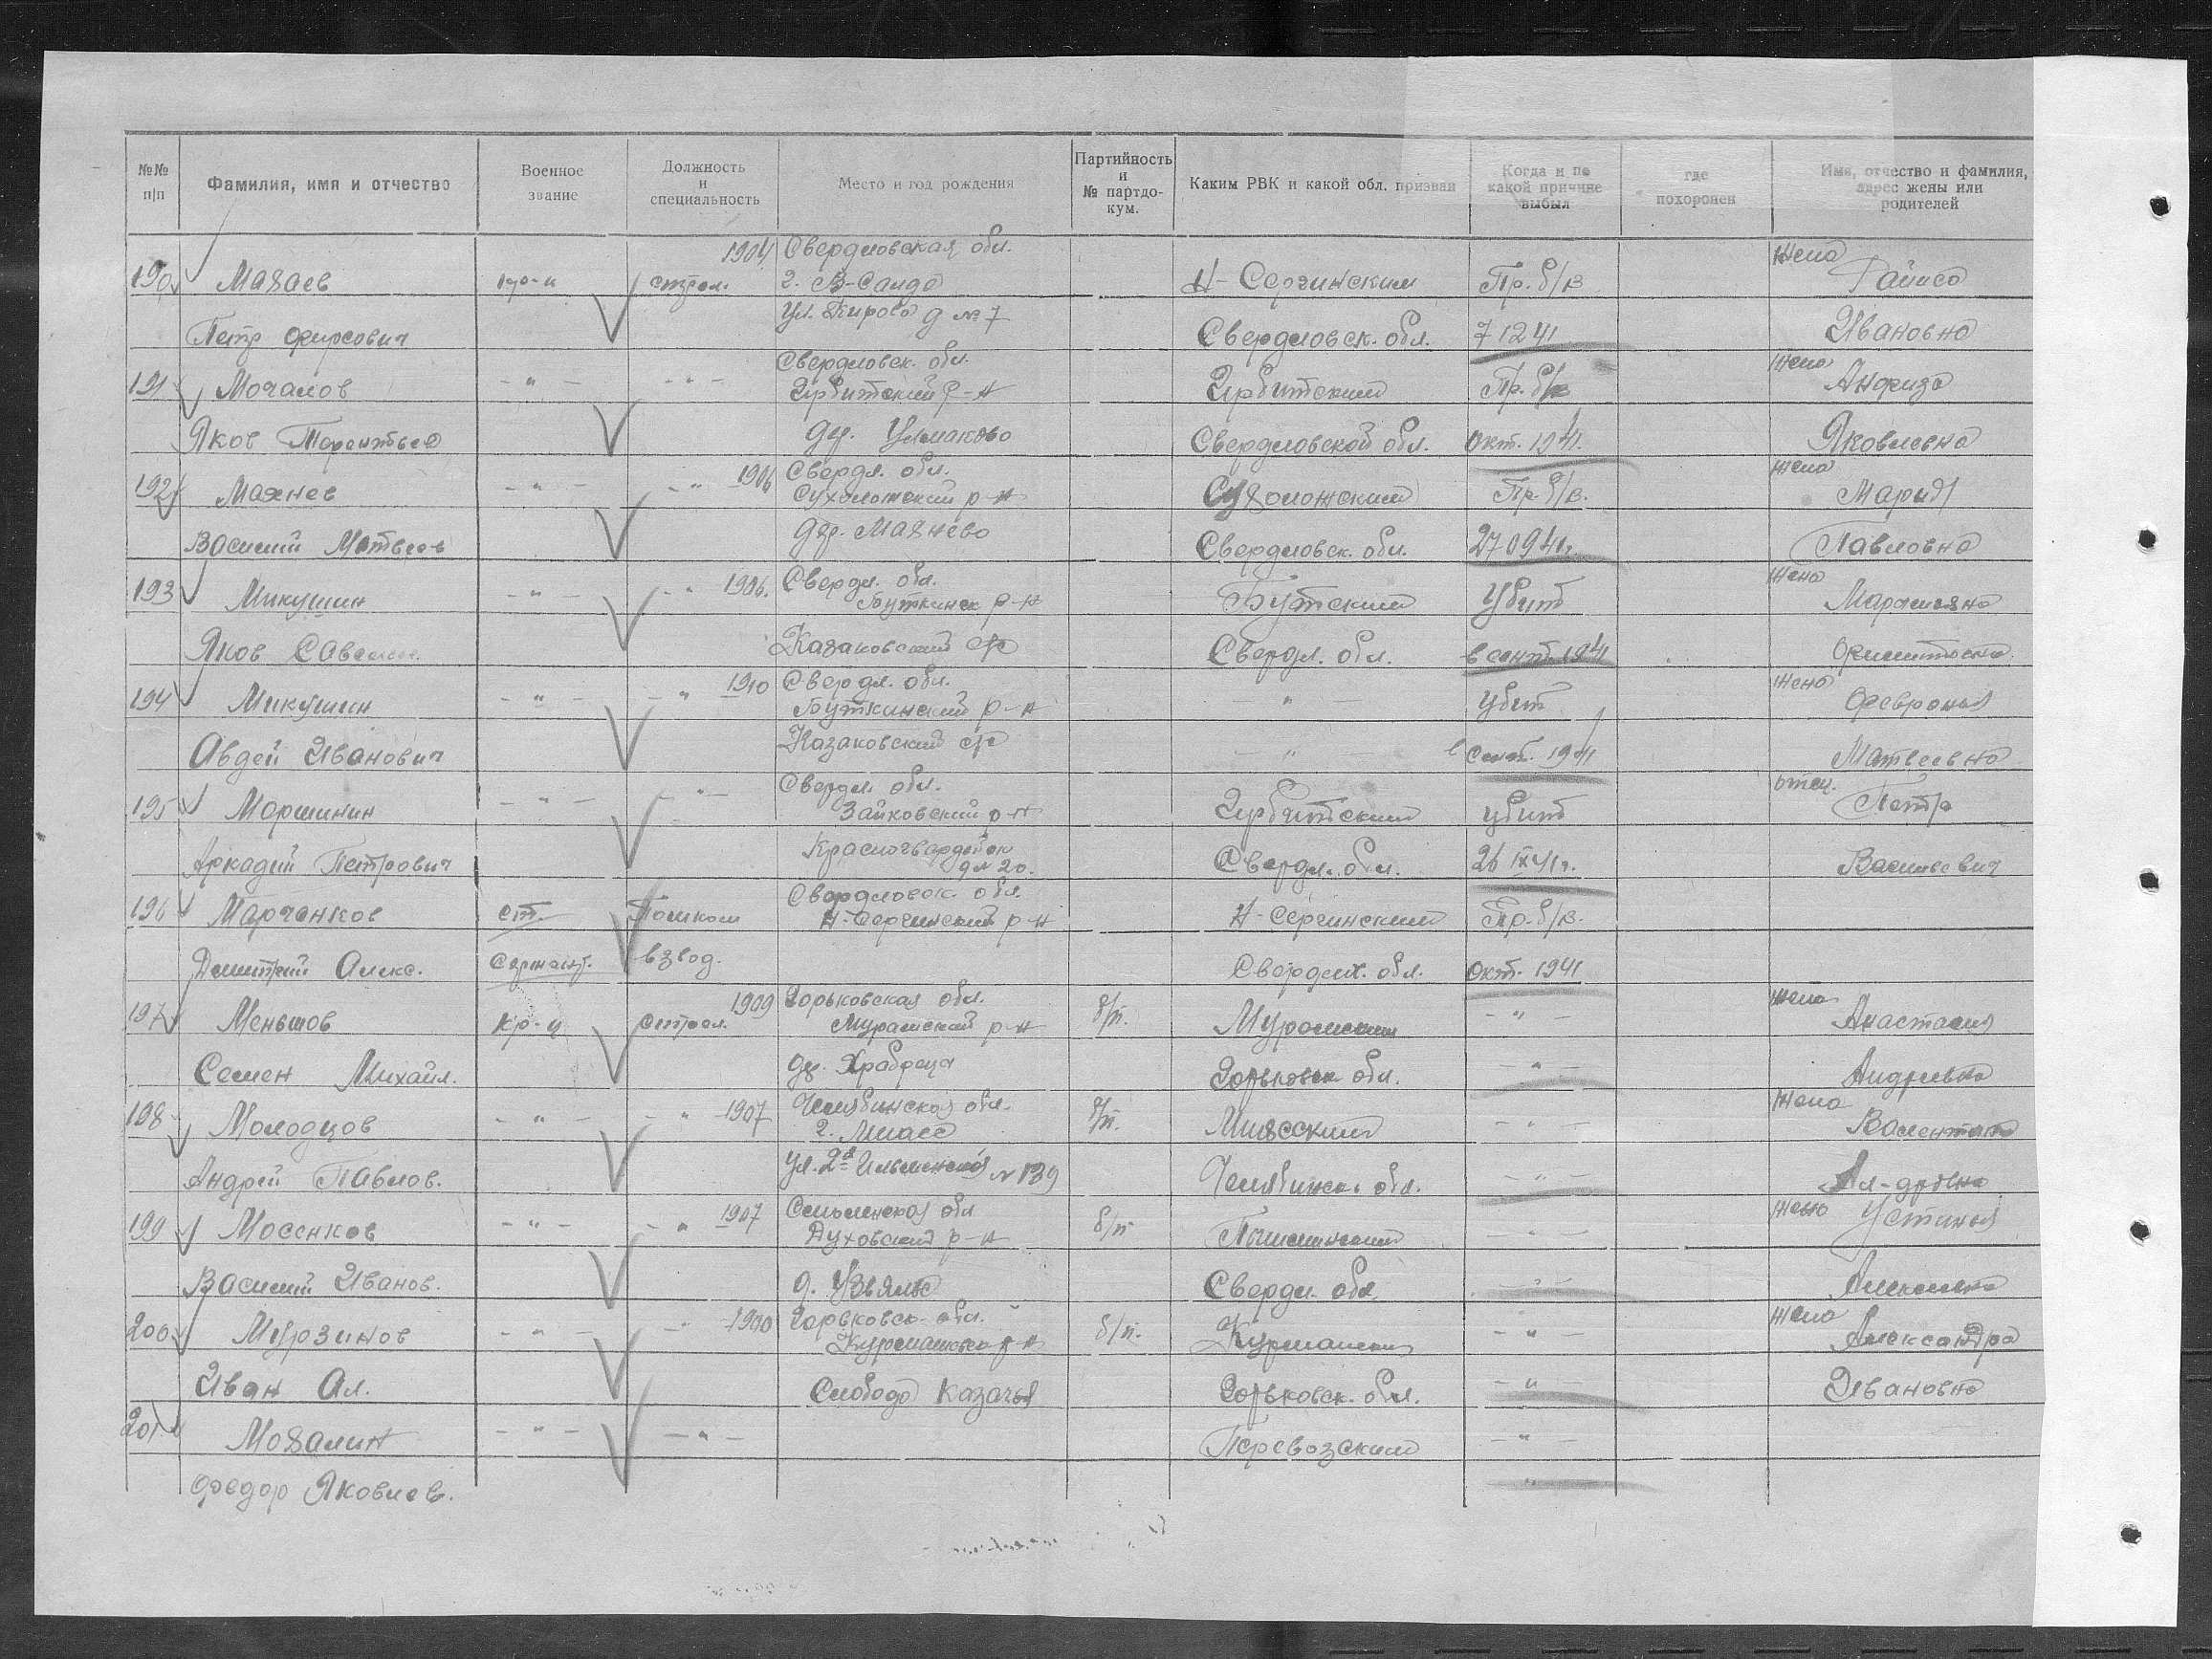 №№ п/п
Фамилия, имя и отчество
Военное звание
Должность и специальность
Место и год рождения
Партийность и № партдокум.
Каким РВК и какой обл. призван
Когда и по какой причине выбыл
где похоронен
Имя, отчество и фамилия, адрес жены или родителей
1904 Свердловская обл. жена
190 Махаев кр-ц стрел. г. В-Салда Н-Сергинским Пр. б/в Раиса
ул. Кирова д №7
Петр Фирсович Свердловск. обл. 7 12 41 Ивановна
Свердловск. обл. жена
191 Мочалов -"- -"- Ирбитский р-н Ирбитским Пр. б/в Анфиза
Яков Терентьев дер. Свердловской обл. окт. 1941. Яковлевна
1906 Свердл. обл. жена
192 Махнев -"- -"- Сухоложский р-н Сухоложским Пр. б/в. Мария
Василий Матвеев дер. Махнево Свердловск. обл. 27 09 41г. Павловна
1906. Свердл. обл. жена
193 Микушин -"- -"- Буткинск р-н Бутским Убит
Яков Казаковский с/с Свердл. обл. в сент. 1941
1910 Свердл. обл. жена
194 Микушин -"- -"- Буткинский р-н -"- убит Февронья
Авдей Иванович Казаковский с/с -"- в сент. 1941 Матвеевна
Свердл. обл. отец.
195 Моршинин -"- -"- Зайковский р-н Ирбитским убит Петр
Аркадий Петрович Красногвардейск д № 20. Свердл. обл. 26 IX 41г. Васильевич
Свердловск. обл.
196 Марченков ст. Помком Н-Сергинский р-н Н-Сергинским Пр. б/в.
Дмитрий Алекс. Сержант. взвод. Свердл. обл. окт. 1941
1909 Горьковская обл. жена
197 Меньшов кр-ц стрел. р-н б/п. -"- Анастасия
Семен Михайл. дер. Храбреца Горьковск обл. -"- Андреевна
1907 Челябинская обл. жена
198 Молодцов -"- -"- г. Миасс б/п. Миасским -"- Валентина
Андрей Павлов. ул. 2я Ильменская № 139 Челябинск. обл. -"- Ал-дровна
1907 Смоленская обл жена Устинья
199 Мосенков -"- -"- Духовский р-н б/п -"-
Василий Иванов. д. Свердл. обл. -"- Алексеевна
1900 Горьковск. обл. жена
200 Мурзинов -"- -"- р-н б/п. -"- Александра
Иван Ал. Слобода Казачья Горьковск. обл. -"- Ивановна
201 Мохалин -"- -"- Перевозским -"-
Федор Яковлев. -"-